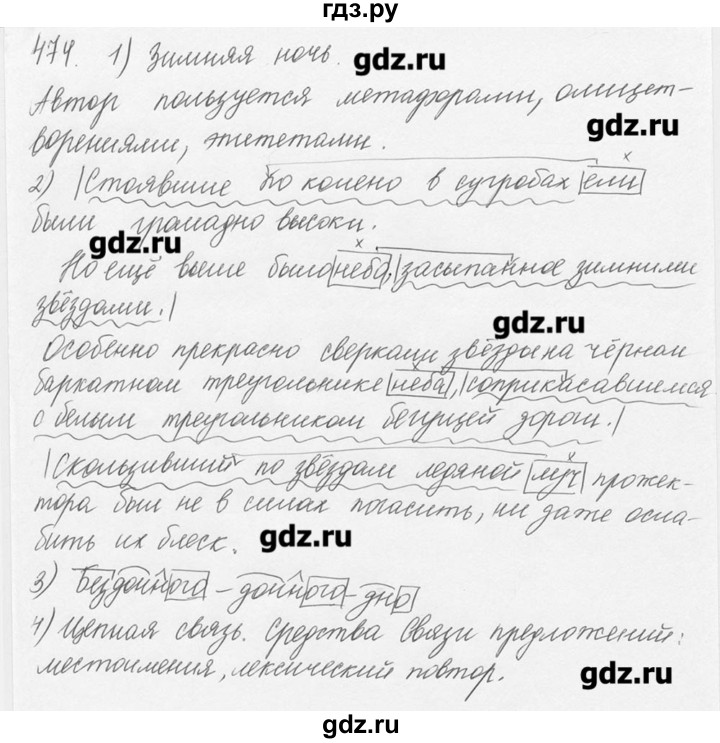 гдз.ру
474. 1) Зимняя ночь. gdz.ru
Автор пользуется метафорами, олицет-
gdz.ru
ворениями, эпитетами.
2) |Стоявшие по колено в сугробах ели
были громадно высоки.
gdz.ru
Но ещё выше было небо, |засыпанное зимними
звёздами.|
gdz.ru
Особенно прекрасно сверкали звёзды на чёрном
бархатном треугольнике неба, |соприкасавшемся
с белым треугольником бегущей дороги.|
|Скользивший по звёздам ледяной луч прожек-
тора был не в силах погасить, ни даже осла-
бить их блеск. gdz.ru
3) Бездонного – донного – дно
4) Цепная связь. Средства связи предложений:
местоимения, лексический повтор. gdz.ru
gdz.ru